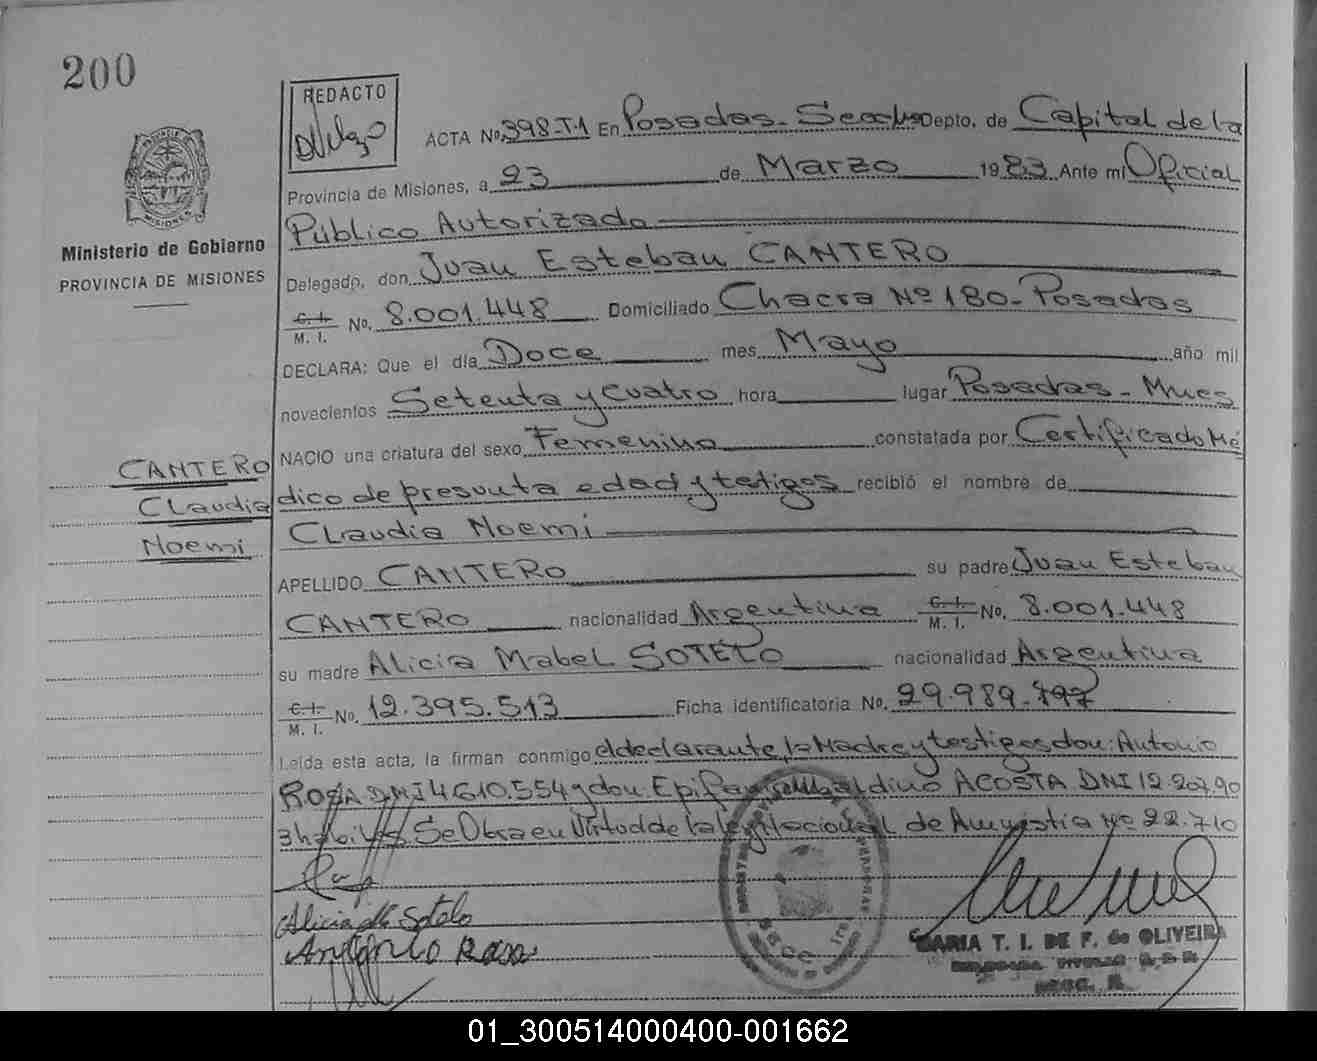 200
REDACTO
ACTA No. 398-T-1 En Posadas - Depto. de Capital de la
Provincia de Misiones, a 23 de Marzo 1983 Ante mi Oficial
Público Autorizado
Ministerio de Gobierno
PROVINCIA DE MISIONES
Delegado, don Juan Esteban CANTERO
C. I.
M. I. No. 8.001.448 Domiciliado Chacra Nº 180 - Posadas
DECLARA: Que el día Doce mes Mayo año mil
novecientos Setenta y Cuatro hora lugar Posadas - Mnes
NACIO una criatura del sexo Femenino constatada por Certificado Mé
dico de presunta edad y testigos recibió el nombre de
Claudia Noemi
CANTERO
Claudia
Noemi
APELLIDO CANTERO su padre Juan Esteban
CANTERO nacionalidad Argentina C. I.
M. I. No. 8.001.448
su madre Alicia Mabel SOTELO nacionalidad Argentina
C. I.
M. I. No. 12.395.513 Ficha identificatoria No. 29.989.
Leída esta acta, la firman conmigo el declarante, la Madre y testigos don: Antonio
ROSA DMI 4610.554 y don ACOSTA DNI 12.207.90
3 habiles Se Obra en Virtud de la de Amnistia Nº 22.710
Alicia M Sotelo
Antonio Rosa
MARIA T. I. DE F. de OLIVEIRA
01_300514000400-001662